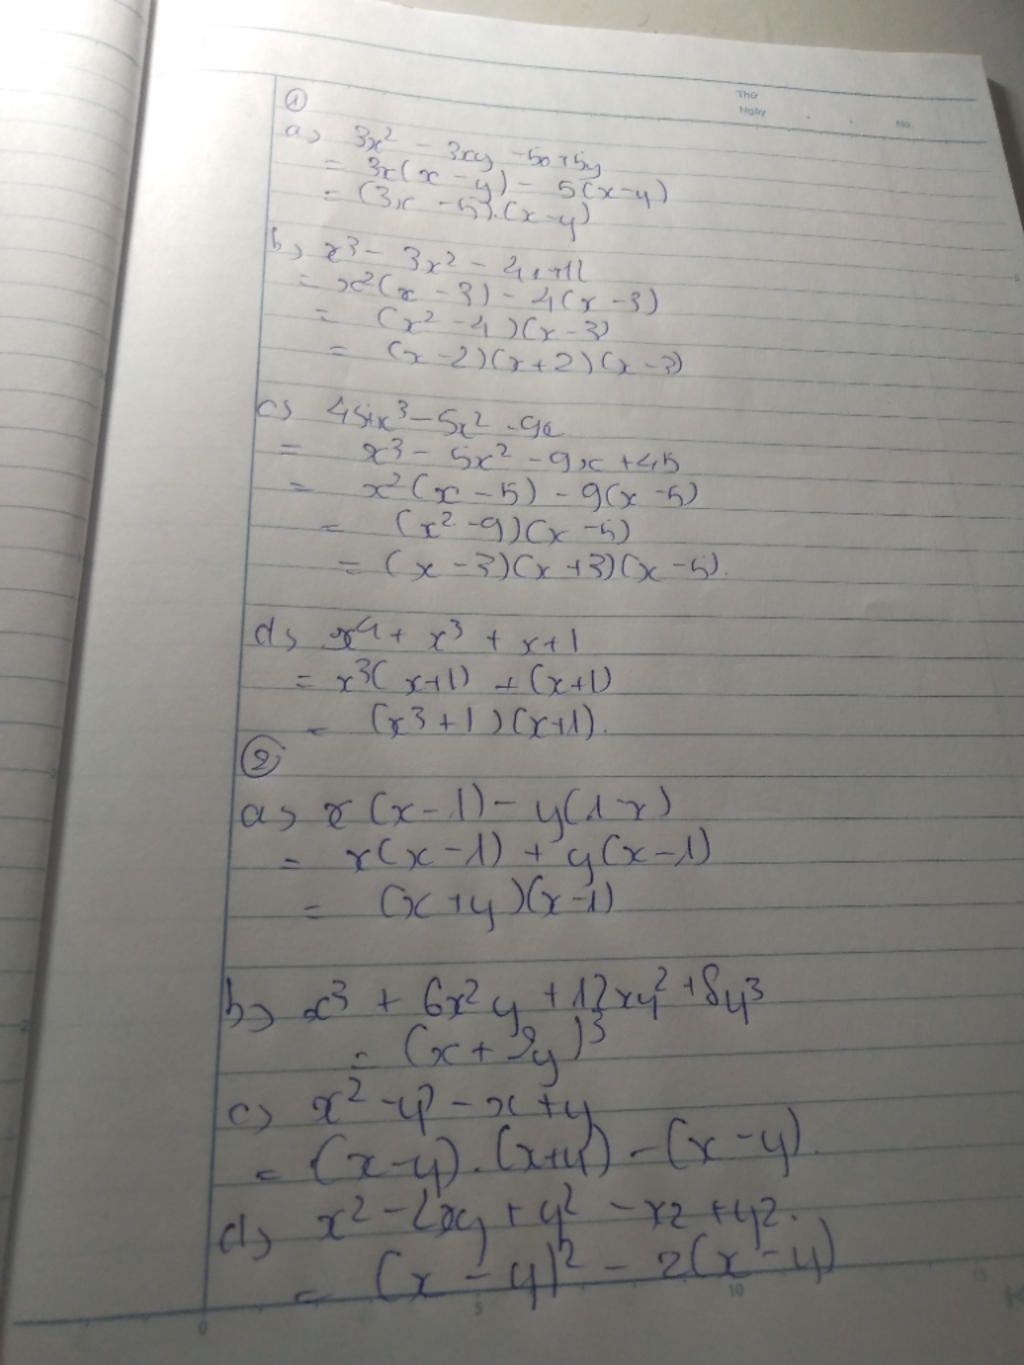 Thứ
Ngày
No.
①
a, 3x² - 3xy - 5x + 5y
= 3x(x - y) - 5(x - y)
= (3x - 5).(x - y)
b, x³ - 3x² - 4x + 12
= x²(x - 3) - 4(x - 3)
= (x² - 4)(x - 3)
= (x - 2)(x + 2)(x - 3)
c, 45 + x³ - 5x² - 9x
= x³ - 5x² - 9x + 45
= x²(x - 5) - 9(x - 5)
= (x² - 9)(x - 5)
= (x - 3)(x + 3)(x - 5).
d, x⁴ + x³ + x + 1
= x³(x + 1) + (x + 1)
= (x³ + 1)(x + 1).
②
a, x(x - 1) - y(1 - x)
= x(x - 1) + y(x - 1)
= (x + y)(x - 1)
b, x³ + 6x²y + 12xy² + 8y³
= (x + 2y)³
c, x² - y² - x + y
= (x - y).(x + y) - (x - y).
d, x² - 2xy + y² - xz + yz.
= (x - y)² - z(x - y)
0 5 10